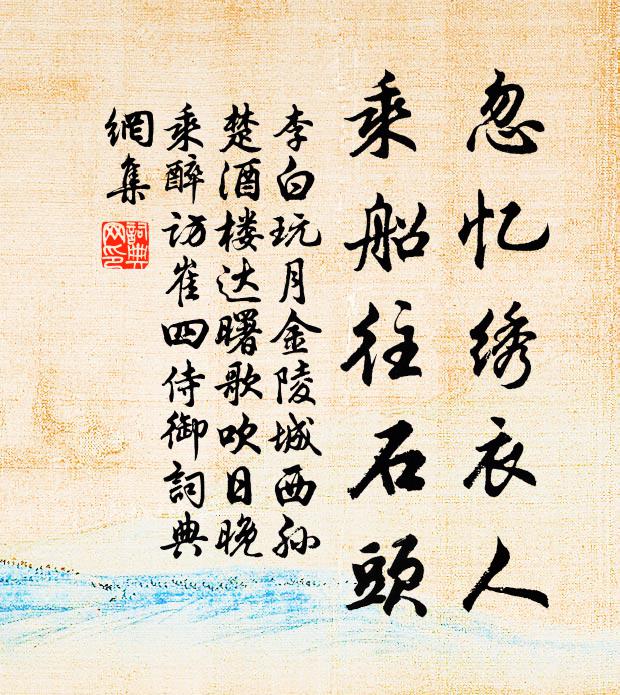 忽忆绣衣人
乘船往石頭
李白玩月金陵城西孙
楚酒楼达曙歌吹日晚
乘醉访崔四侍御詞典
網集
詞典
网印